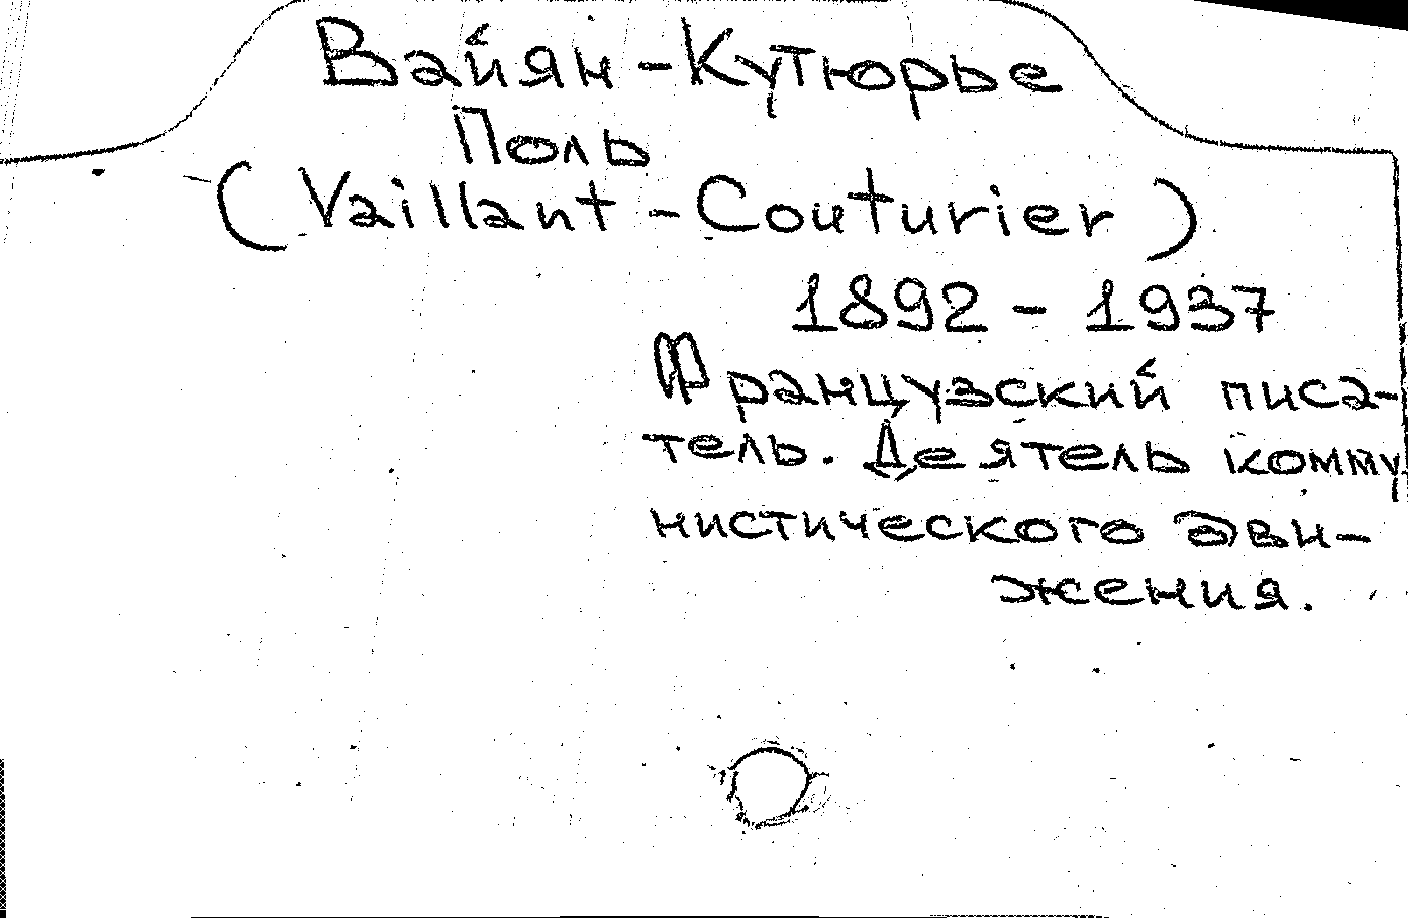 Вайян-Кутюрье
Поль
(Vaillant-Couturier)
1892 - 1937
Французский писа-
тель. Деятель комму
нистического дви-
жения.